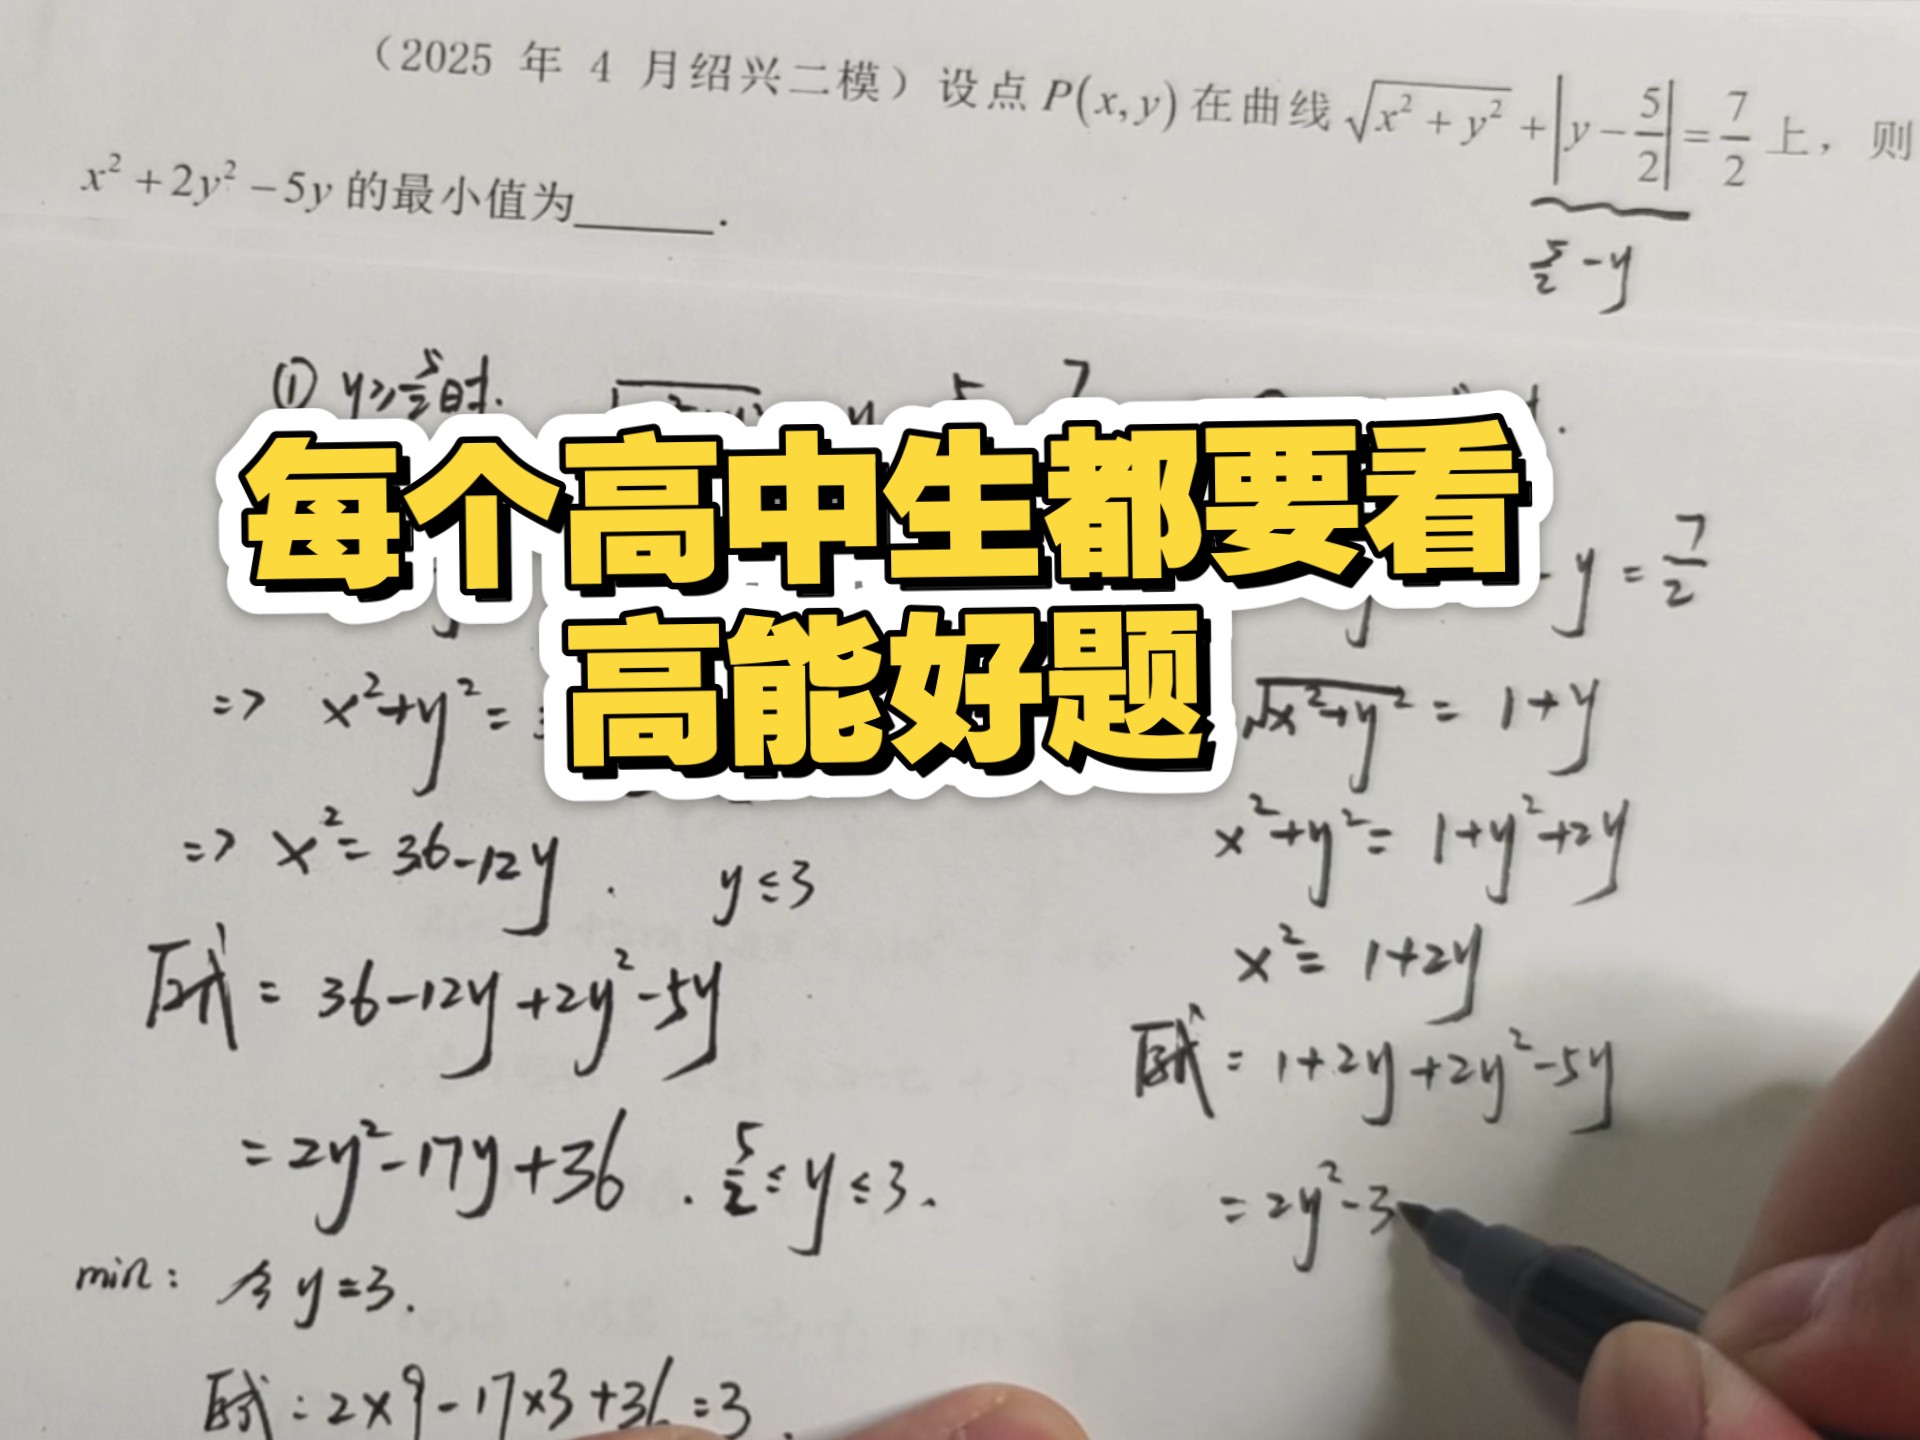 （2025 年 4 月绍兴二模）设点 P(x,y) 在曲线 √(x²+y²) + |y − 5/2| = 7/2 上，则
x² + 2y² − 5y 的最小值为______.
5/2 − y
① y ≥ 5/2 时.
每个高中生都要看
高能好题
− y = 7/2
=> x²+y² =
√(x²+y²) = 1+y
=> x² = 36−12y . y ≤ 3
x²+y² = 1+y²+2y
原式 = 36−12y+2y²−5y
x² = 1+2y
= 2y²−17y+36 . 5/2 ≤ y ≤ 3.
原式 = 1+2y+2y²−5y
= 2y²−3
min: 令 y=3.
原式 = 2×9−17×3+36 = 3.